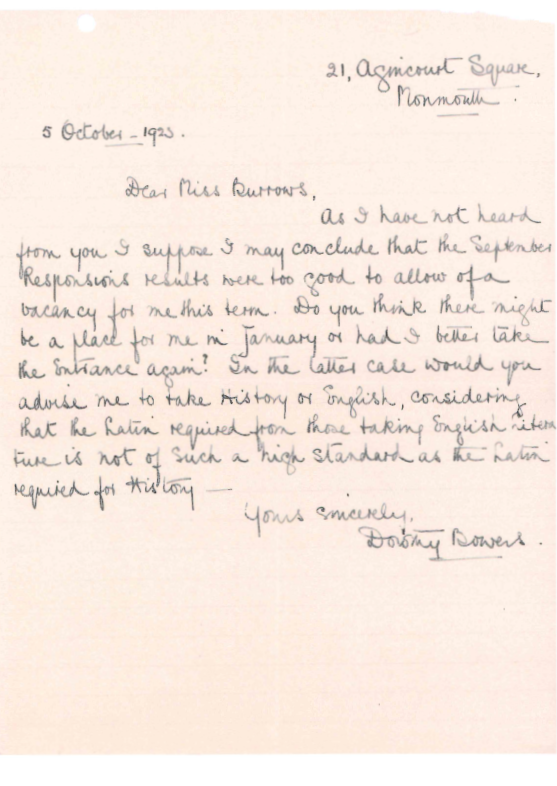 21, Agincourt Square,
Monmouth.
5 October - 1923.
Dear Miss Burrows,
As I have not heard
from you I suppose I may conclude that the September
Responsions results were too good to allow of a
vacancy for me this term. Do you think there might
be a place for me in January or had I better take
the Entrance again? In the latter case would you
advise me to take History or English, considering
that the Latin required from those taking English litera
ture is not of such a high standard as the Latin
required for History —
Yours sincerely,
Dorothy Bowers.